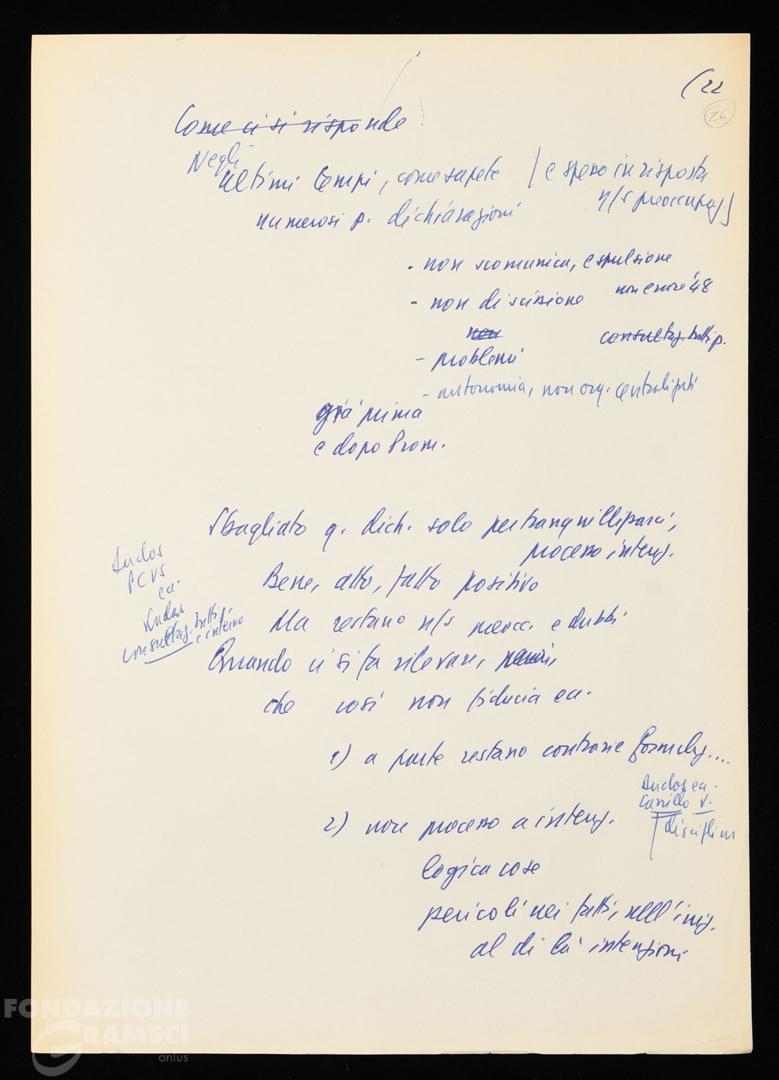 (22
26
Come ci si risponde
Negli
ultimi tempi, come sapete / e spero in risposta
n/s preoccupaz]
numerosi p. dichiarazioni
- non scomunica, espulsione
- non discissione non errore '48
non consultaz. tutti p.
- problemi
- autonomia, non org. centralizzati
già prima
e dopo Prom.
Sbagliato q. dich. solo per tranquillizzarci,
processo intenz.
Bene, atto, fatto positivo
Ma restano n/s preocc. e dubbi
PCUS
ca.
consultaz. tutti p.
e interno
Quando ci si fa rilevare,
che così non fiducia ea.
1) a parte restano contrarie formulaz....
Carrillo V.
disciplina
2) non processo a intenz.
logica cose
pericoli nei fatti, nell'iniz.
al di là intenzioni
FONDAZIONE
GRAMSCI
onlus